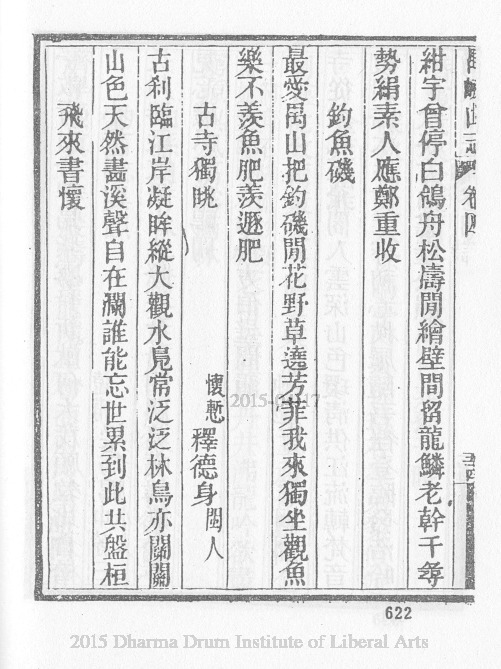 紺宇曾停白鴿舟松濤閒繪壁間留龍鱗老幹千尋
勢絹素人應鄭重收
釣魚磯
最愛禺山把釣磯閒花野草遶芳菲我來獨坐觀魚
樂不羨魚肥羨遯肥
古寺獨眺 懷慙 釋德身 閩人
古刹臨江岸凝眸縱大觀水鳧常泛泛林鳥亦關關
山色天然畵溪聲自在瀾誰能忘世累到此共盤桓
飛來書懷
622
2015 Dharma Drum Institute of Liberal Arts